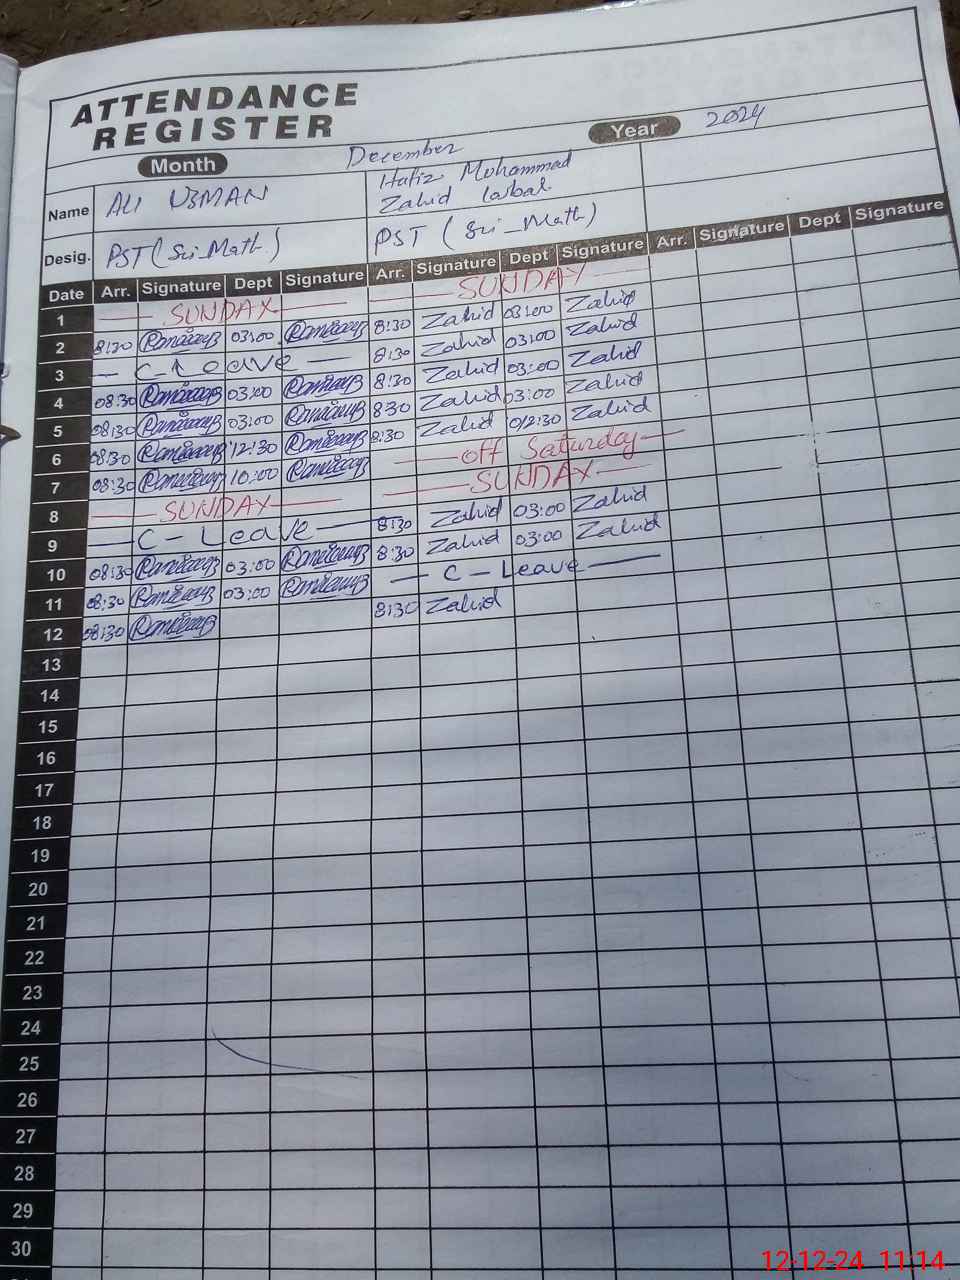 ATTENDANCE
REGISTER
Month December Year 2024
Name ALI USMAN Hafiz Muhammad
Zahid Iqbal
Desig. PST (Sci_Math) PST (Sci_Math)
Date Arr. Signature Dept Signature Arr. Signature Dept Signature Arr. Signature Dept Signature
1 SUNDAY SUNDAY
2 8:30 03:00 8:30 Zahid 03:00 Zahid
3 C-Leave 8:30 Zahid 03:00 Zahid
4 08:30 03:00 8:30 Zahid 03:00 Zahid
5 08:30 03:00 830 Zahid 03:00 Zahid
6 08:30 12:30 8:30 Zahid 12:30 Zahid
7 08:30 10:00 off Saturday
8 SUNDAY SUNDAY
9 C-Leave 8:30 Zahid 03:00 Zahid
10 08:30 03:00 8:30 Zahid 03:00 Zahid
11 08:30 03:00 C-Leave
12 08:30 8:30 Zahid
13
14
15
16
17
18
19
20
21
22
23
24
25
26
27
28
29
30
12-12-24 11:14